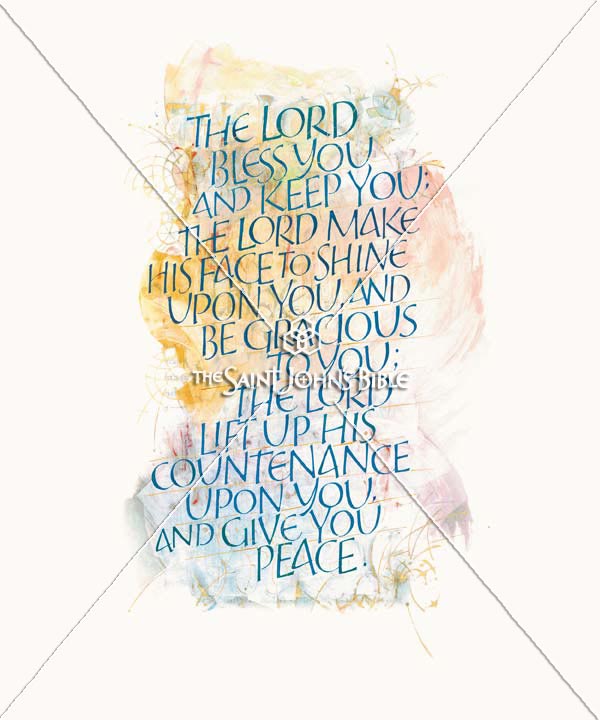 THE LORD
BLESS YOU
AND KEEP YOU;
THE LORD MAKE
HIS FACE TO SHINE
UPON YOU, AND
BE GRACIOUS
TO YOU;
THE SAINT JOHN'S BIBLE
THE LORD
LIFT UP HIS
COUNTENANCE
UPON YOU,
AND GIVE YOU
PEACE.